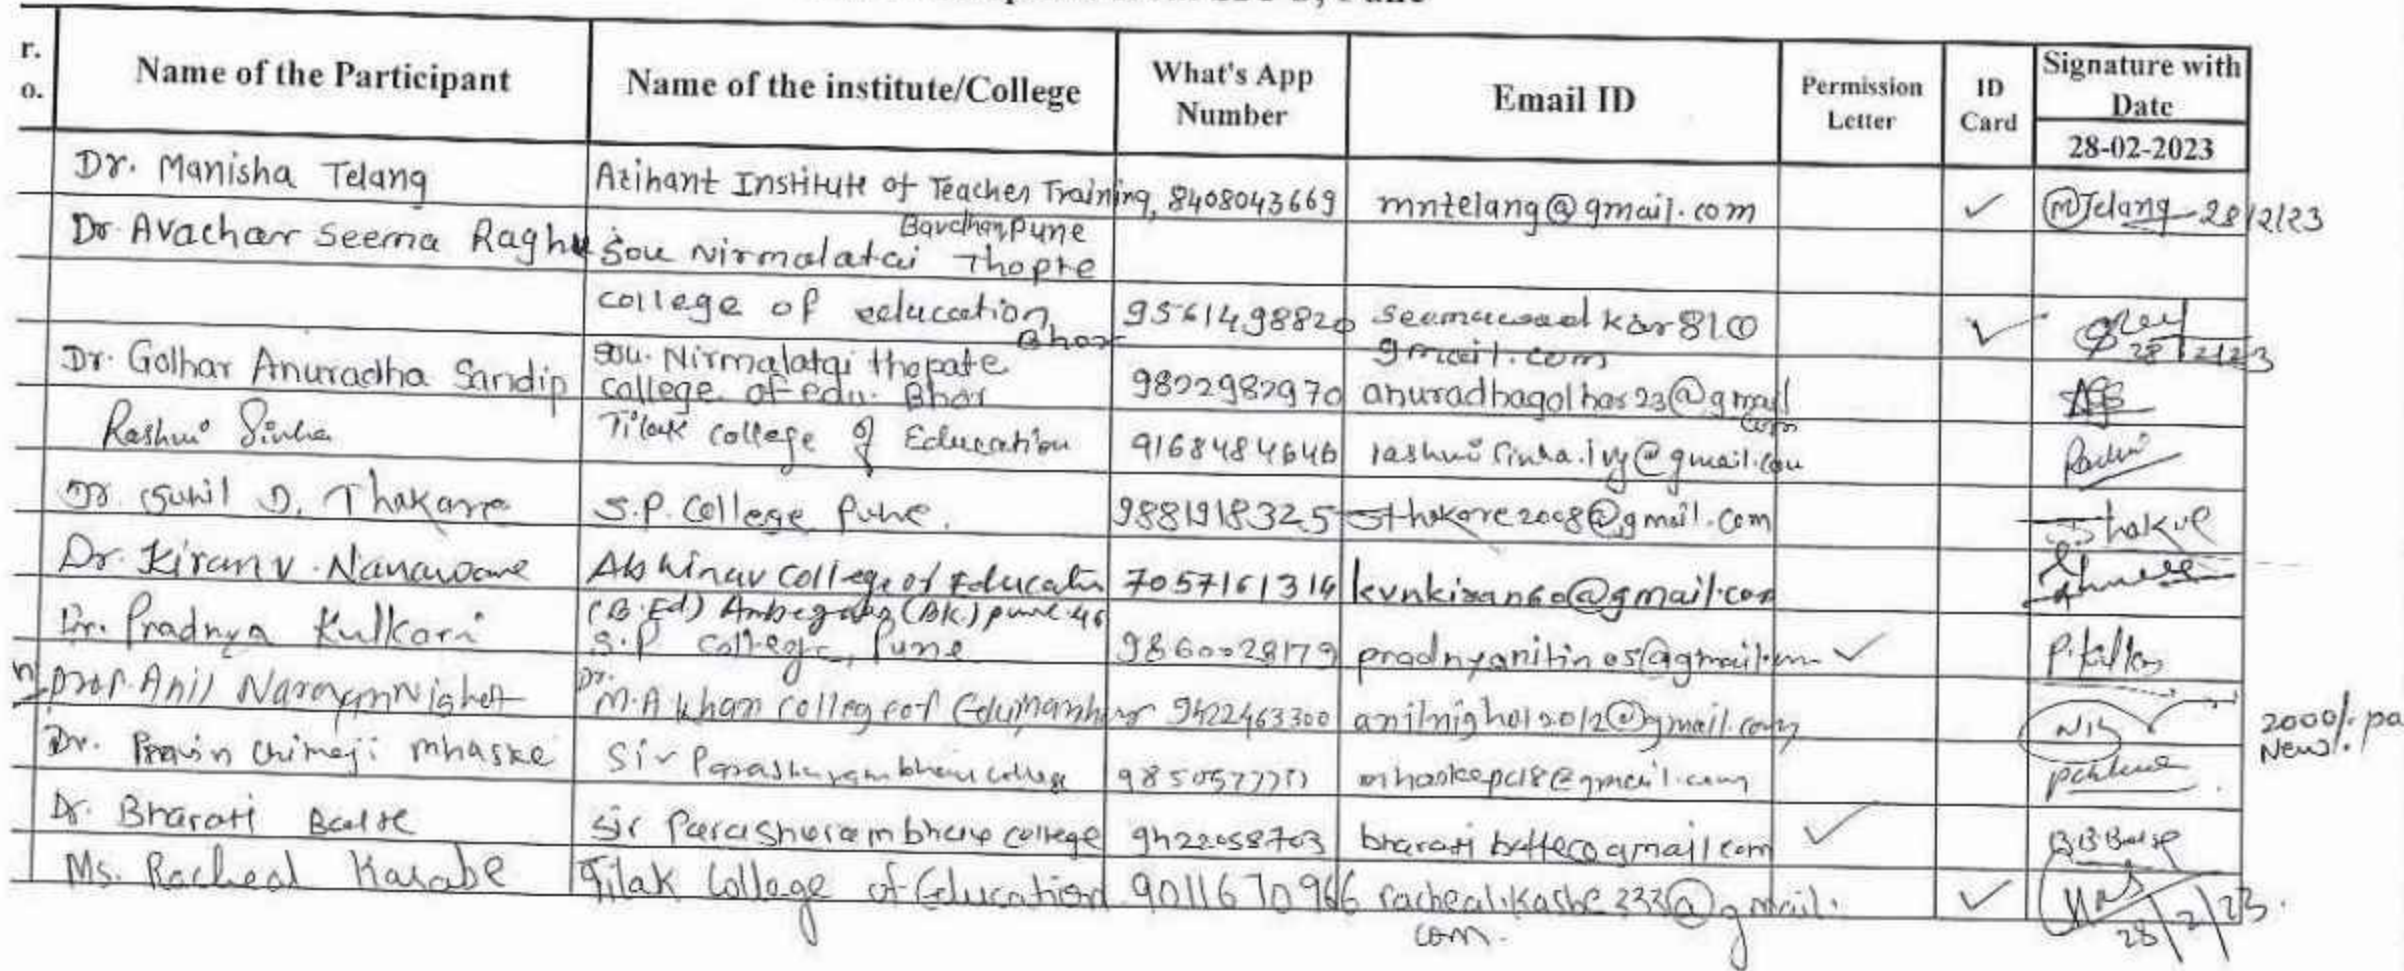 r. o. Name of the Participant Name of the institute/College What's App Number Email ID Permission Letter ID Card Signature with Date
28-02-2023
Dr. Manisha Telang Arihant Institute of Teacher Training, Bavdhan Pune 8408043669 mntelang@gmail.com ✓ Telang 28/2/23
Dr. Avachar Seema Raghu Sou Nirmalatai Thopte
college of education Bhor 9561498820 ✓ 28/2/23
gmail.com
Dr. Golhar Anuradha Sandip Sou. Nirmalatai thopate college of edu. Bhor 9822982970 anuradhagolhar23@gmail com
Rashmi Sinha Tilak College of Education 9168484646 rashmisinha.ivy@gmail.com
Dr. Sunil D. Thakare S.P. College Pune. 9881918325 sthakare2008@gmail.com
Dr. Kiran V. Nanaware Abhinav College of Educatin 7057161314 kvnkiran60@gmail.com
(B.Ed) Ambegaon (BK) pune-46
Dr. Pradnya Kulkarni S.P College, Pune 9860028179 pradnyanitin05@gmail. ✓
prof. Anil Narayan Dr. M.A khan College of Edu, 9422463300 @gmail.com 2000/-
Dr. Pravin Chimaji Mhaske Sir Parashurambhau College mhaskepc18@gmail.com
Dr. Bharati Sir Parashurambhau College 9422058703 bharati ✓
Ms. Racheal Kasabe Tilak College of Education 9011670966 racheal.kasbe333@gmail. ✓ 28/2/23.
com.